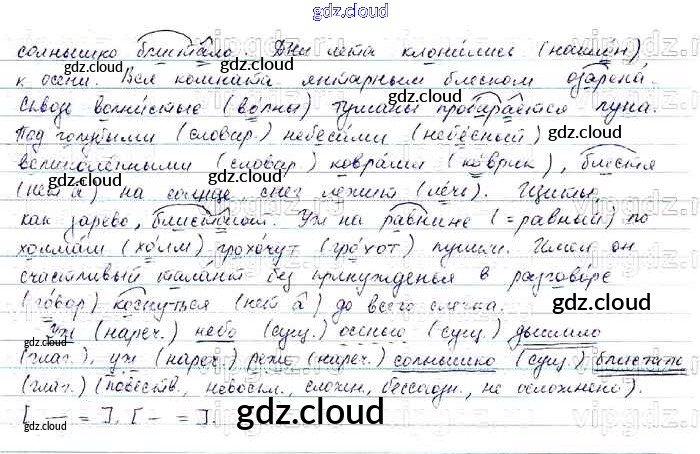 gdz.cloud
солнышко блистало. Дни лета клонились (наклон)
к осени. Вся комната янтарным блеском озарена.
Сквозь волнистые (волны) туманы пробирается луна.
Под голубыми (словар.) небесами (небесный)
великолепными (словар.) коврами (коврик), блестя
(нет а) на солнце снег лежит (лечь). Щиты,
как зарево, блистают. Уж на равнине (=равный) по
холмам (холм) грохочут (грохот) пушки. Имел он
счастливый талант без принужденья в разговоре
(говор) коснуться (нет а) до всего слегка.
Уж (нареч.) небо (сущ.) осенью (сущ.) дышало
(глаг.), уж (нареч.) реже (нареч.) солнышко (сущ.) блистало
(глаг.) (повеств., невоскл., сложн., бессоюзн., не осложнено).
[ — = ], [ — = ].
gdz.cloud